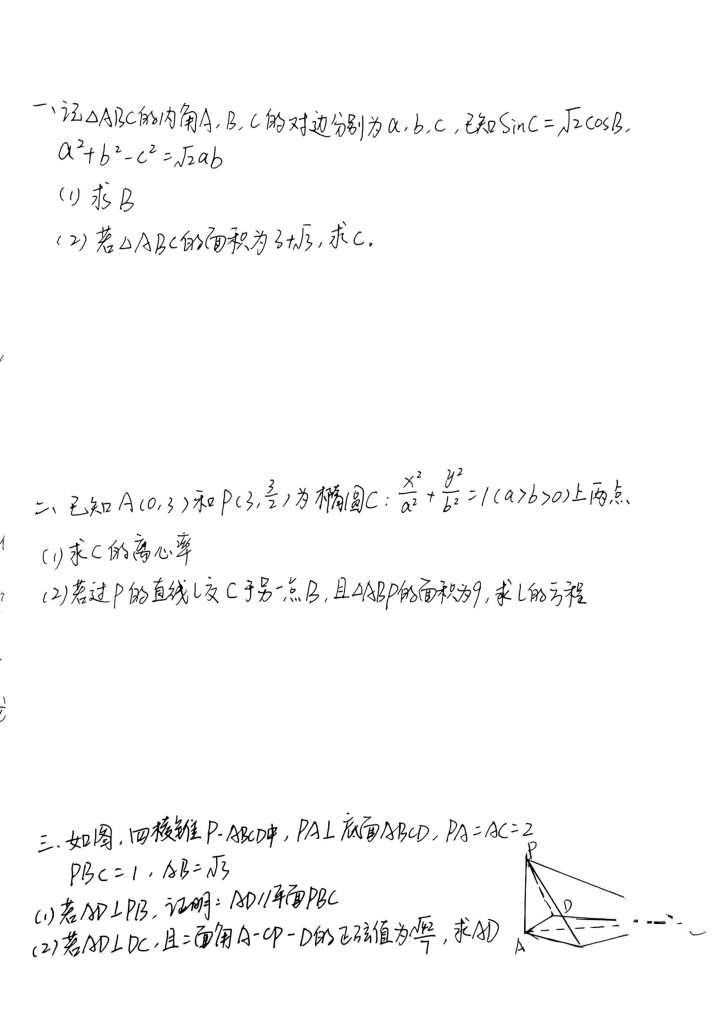 一、记△ABC的内角A,B,C的对边分别为a,b,c,已知SinC=√2cosB,
a²+b²-c²=√2ab
(1)求B
(2)若△ABC的面积为3+√3,求C.
二、已知A(0,3)和P(3,3/2)为椭圆C:x²/a²+y²/b²=1(a>b>0)上两点
(1)求C的离心率
(2)若过P的直线L交C于另一点B,且△ABP的面积为9,求L的方程
三、如图,四棱锥P-ABCD中,PA⊥底面ABCD,PA=AC=2
PBC=1,AB=√3
(1)若AD⊥PB,证明:AD//平面PBC
(2)若AD⊥DC,且二面角A-CP-D的正弦值为√42/7,求AD
P
D
A